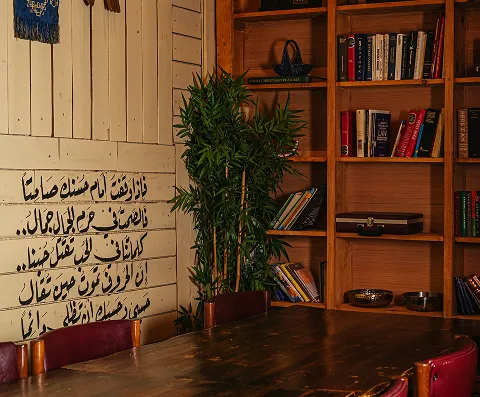 فإذا وقفت أمام حسنك صامتا
فالصمت في حرم الجمال جمال..
كلماتنا في الحب تقتل حبنا..
إن الحروف تموت حين تقال
حسبي وحسبك أن تظلي دائما